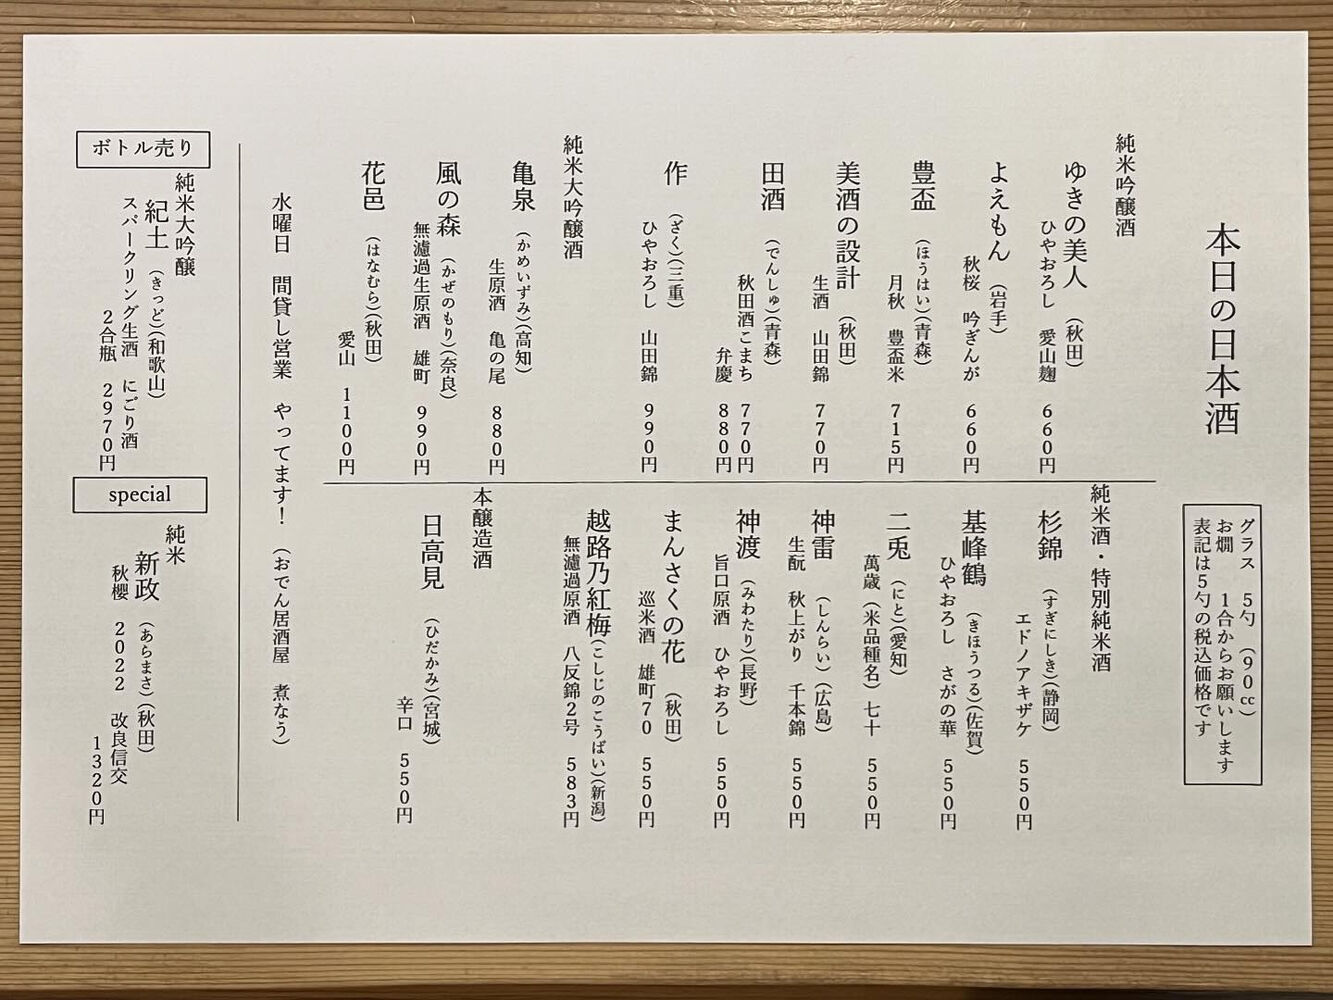 本日の日本酒
グラス　5勺　（90㏄）
お燗　1合からお願いします
表記は5勺の税込価格です
純米吟醸酒
ゆきの美人　（秋田）
ひやおろし　愛山麹　660円
よえもん　（岩手）
秋桜　吟ぎんが　660円
豊盃　（ほうはい）（青森）
月秋　豊盃米　715円
美酒の設計　（秋田）
生酒　山田錦　770円
田酒　（でんしゅ）（青森）
秋田酒こまち　770円
弁慶　880円
作　（ざく）（三重）
ひやおろし　山田錦　990円
純米大吟醸酒
亀泉　（かめいずみ）（高知）
生原酒　亀の尾　880円
風の森　（かぜのもり）（奈良）
無濾過生原酒　雄町　990円
花邑　（はなむら）（秋田）
愛山　1100円
純米酒・特別純米酒
杉錦　（すぎにしき）（静岡）
エドノアキザケ　550円
基峰鶴　（きほうつる）（佐賀）
ひやおろし　さがの華　550円
二兎　（にと）（愛知）
萬歳（米品種名）七十　550円
神雷　（しんらい）（広島）
生酛　秋上がり　千本錦　550円
神渡　（みわたり）（長野）
旨口原酒　ひやおろし　550円
まんさくの花　（秋田）
巡米酒　雄町70　550円
越路乃紅梅（こしじのこうばい）（新潟）
無濾過原酒　八反錦2号　583円
本醸造酒
日高見　（ひだかみ）（宮城）
辛口　550円
水曜日　間貸し営業　やってます！　（おでん居酒屋　煮なう）
ボトル売り
純米大吟醸
紀土　（きっど）（和歌山）
スパークリング生酒　にごり酒
2合瓶　2970円
special
純米
新政　（あらまさ）（秋田）
秋櫻　2022　改良信交
1320円